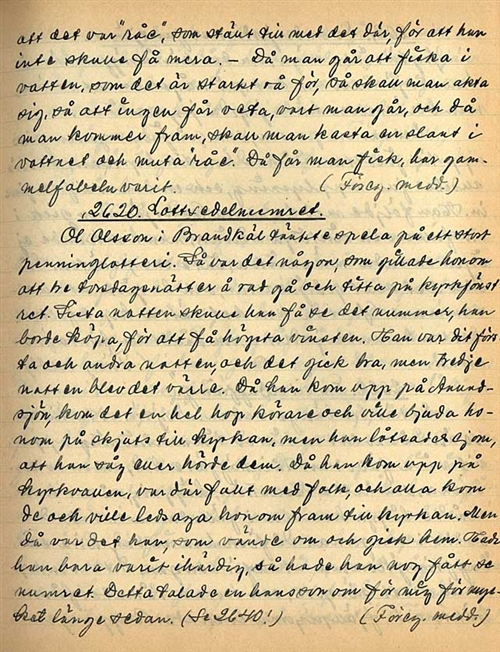 att det var "råe", som stänt till med det där, för att han
inte skulle få mera. – Då man går att fiska i
vatten, som det är starkt rå för, så skall man akta
sig, så att ingen får veta, vart man går, och då
man kommer fram, skall man kasta en slant i
vattnet och muta "råe". Då får man fisk, har gam-
melfabeln varit. (Föreg. medd.)
12620. Lottsedelnumret.
Ol Olsson i Brandkäl tänkte spela på ett stort
penninglotteri. Så var det någon, som gillade honom
att tre torsdagsnätter å rad gå och titta på kyrkfönst
ret. Sista natten skulle han få se det nummer, han
borde köpa, för att få högsta vinsten. Han var dit förs
ta och andra natten, och det gick bra, men tredje
natten blev det värre. Då han kom upp på Anund-
sjön, kom det en hel hop körare och ville bjuda ho-
nom på skjuts till kyrkan, men han låtsades ej om,
att han såg eller hörde dem. Då han kom upp på
kyrkvallen, var där fullt med folk, och alla kom
de och ville ledsaga honom fram till kyrkan. Men
då var det han, som vände om och gick hem. Hade
han bara varit ihärdig, så hade han nog fått se
numret. Detta talade en hans son om för mig för myc-
ket länge sedan. (Se 2640!) (Föreg. medd.)